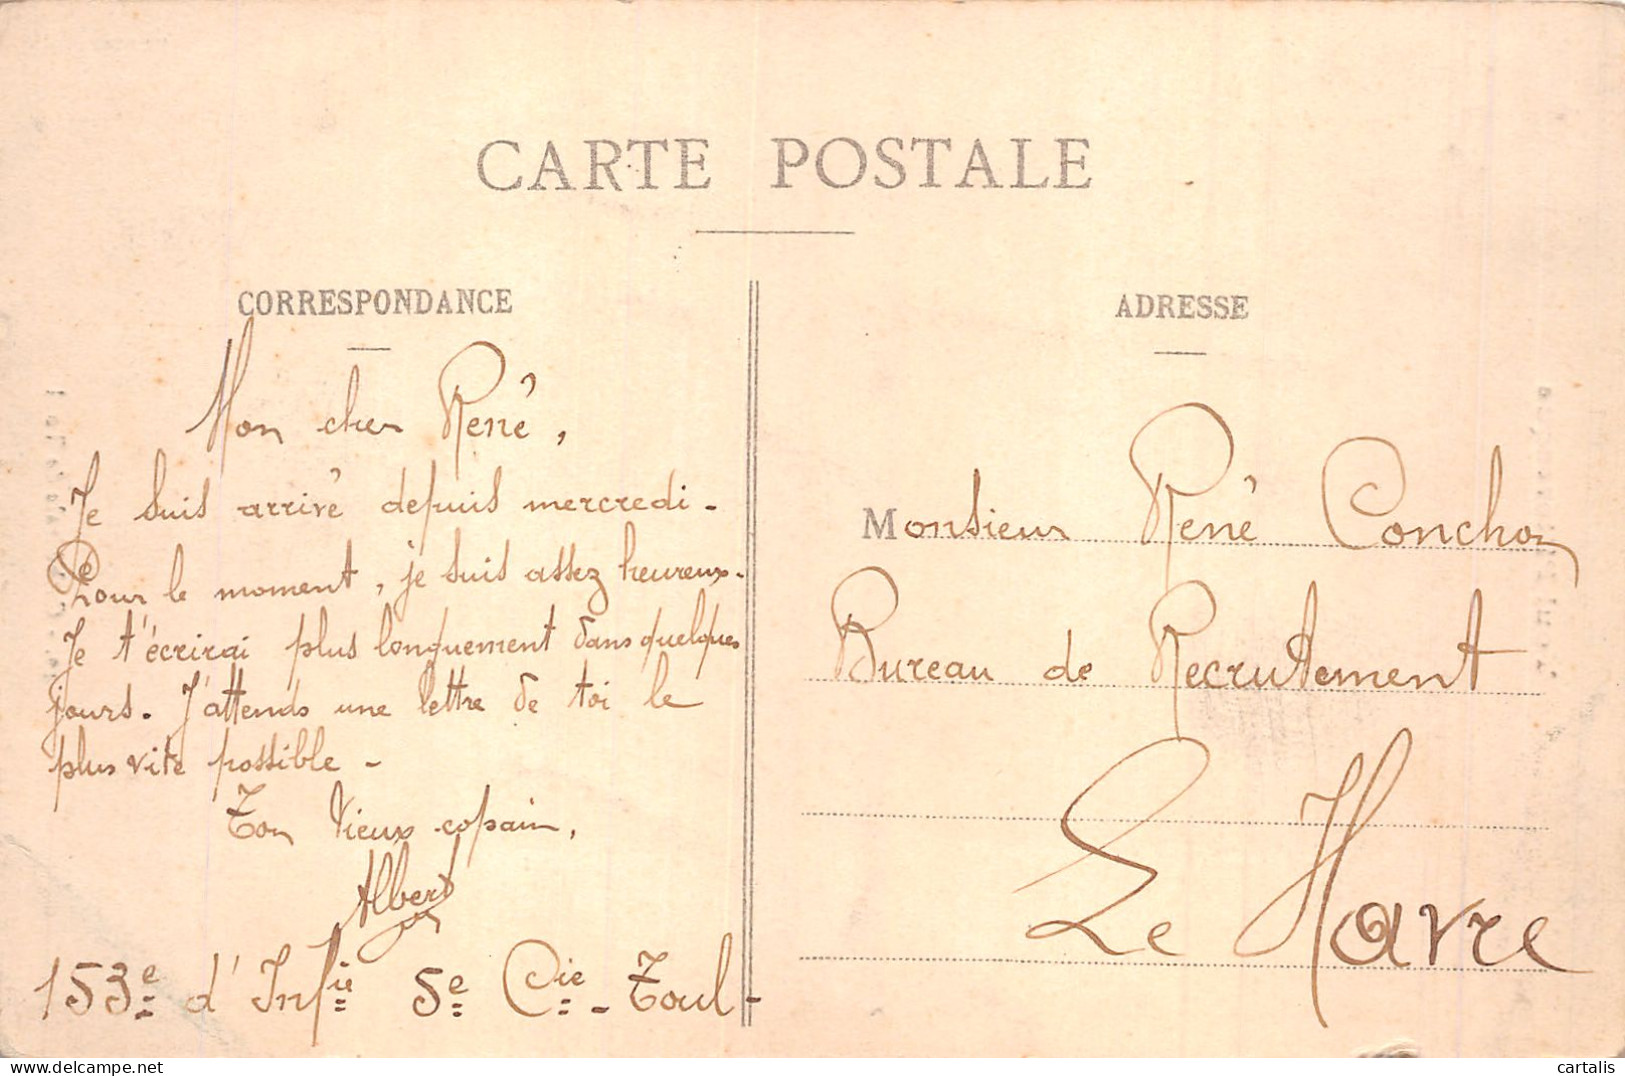 CARTE POSTALE
CORRESPONDANCE
Mon cher René,
Je suis arrivé depuis mercredi -
Pour le moment, je suis assez heureux.
Je t'écrirai plus longuement dans quelques
jours. J'attends une lettre de toi le
plus vite possible -
Ton vieux copain,
Albert
153e d'Infie 5e Cie - Toul -
ADRESSE
Monsieur René Conchon
Bureau de Recrutement
Le Havre
cartalis